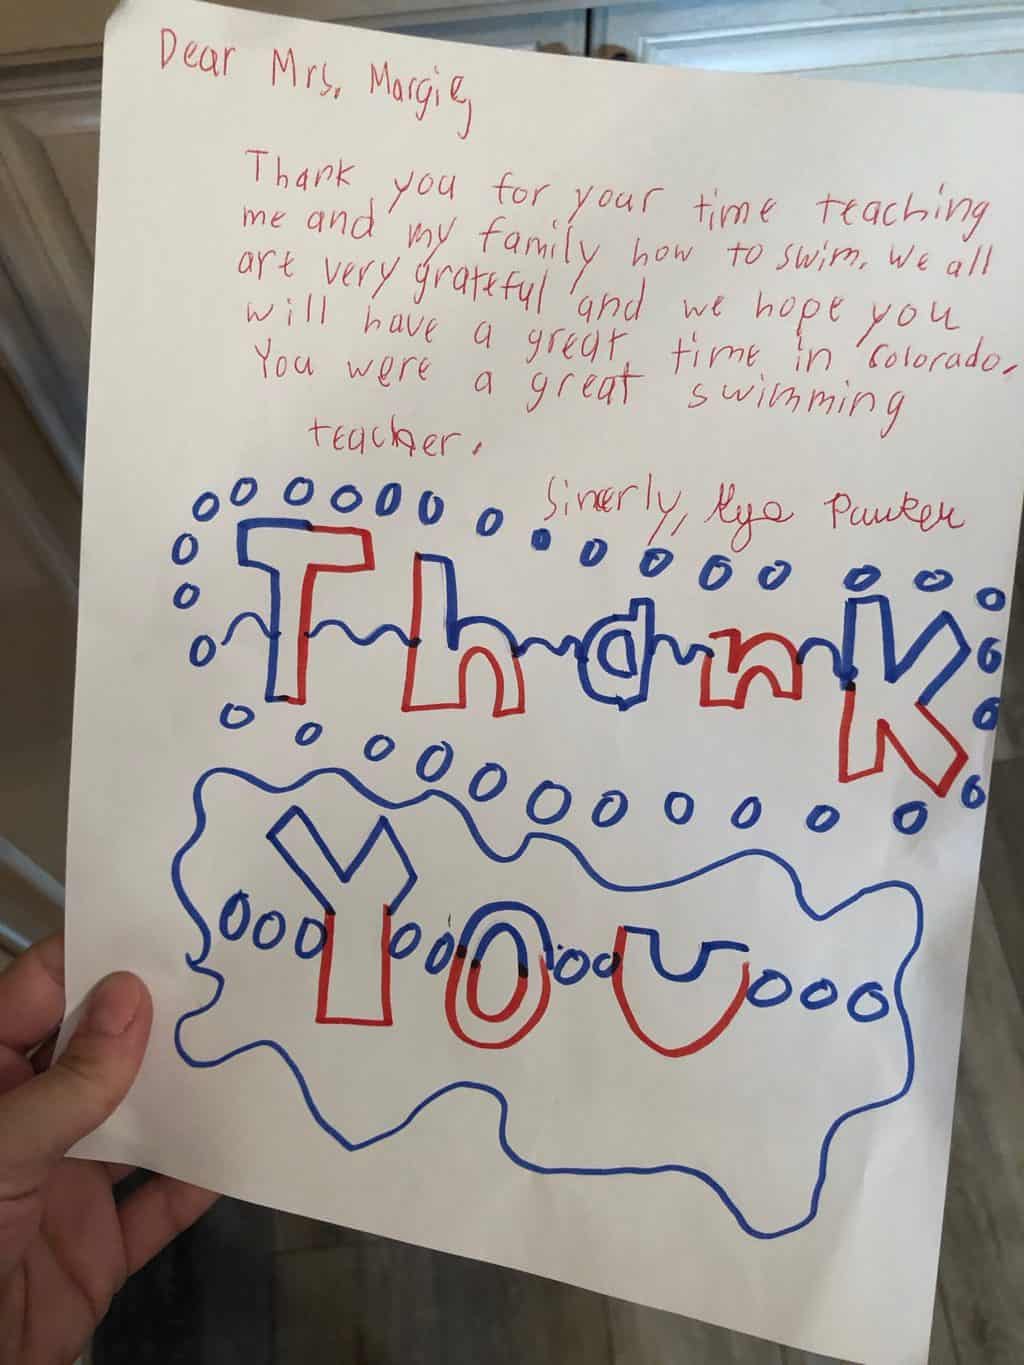 Dear Mrs. Margie,
Thank you for your time teaching
me and my family how to swim. We all
are very grateful and we hope you
will have a great time in Colorado.
You were a great swimming
teacher.
Sincerly,
Thank
You